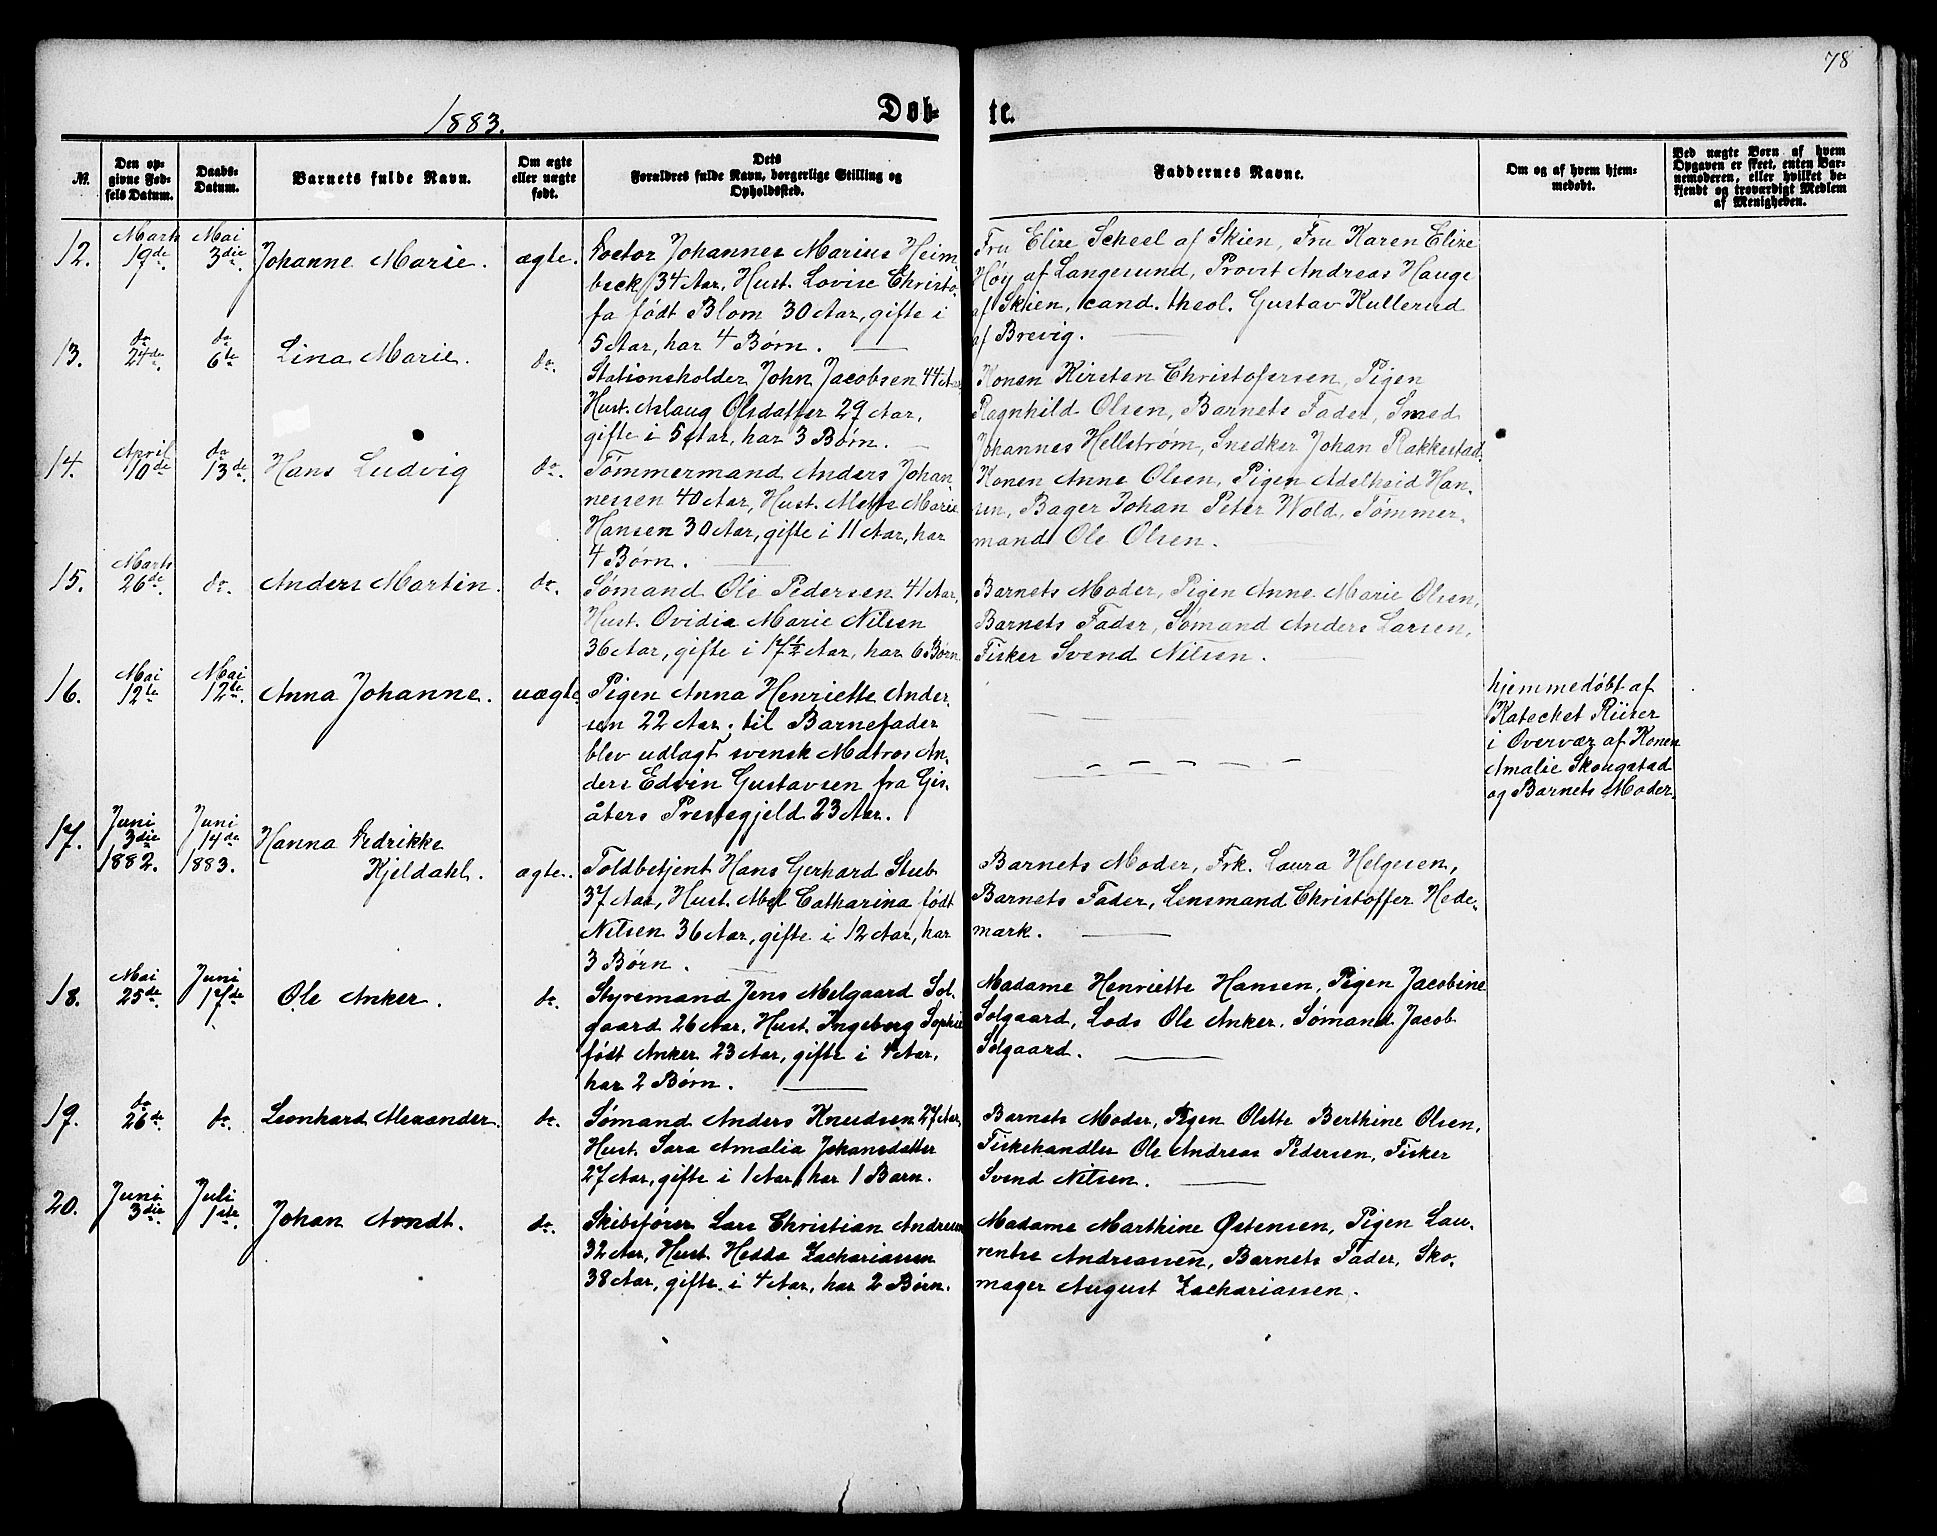 78
1883.
Døb-
te.
№.
Den op-
givne Fød-
sels Datum.
Daabs-
Datum.
Barnets fulde Navn.
Om ægte
eller uægte
født.
Dets
Forældres fulde Navn, borgerlige Stilling og
Opholdssted.
Faddernes Navne.
Om og af hvem hjem-
medøbt.
Ved uægte Børn af hvem
Opgaven er skeet, enten Bar-
nemoderen, eller hvilket be-
kjendt og troværdigt Medlem
af Menigheden.
12.
Marts
19de
Mai
3die.
Johanne Marie.
ægte.
Doctor Johannes Marius Heim-
beck, 34 Aar, Hust. Lovise Christo-
fa født Blom 30 Aar, gifte i
5 Aar, har 4 Børn.
Fru Elise Scheel af Skien, Fru Karen Elise
Høy af Langesund, Provst Andreas Hauge
af Skien, cand. theol. Gustav Kullerud
af Brevig.
13.
do
24de.
do
6te
Lina Marie.
do.
Stationsholder John Jacobsen 44 Aar,
Hust. Aslaug Olsdatter 29 Aar,
gifte i 5 Aar, har 3 Børn.
Konen Kirsten Christofersen, Pigen
Ragnhild Olsen, Barnets Fader, Smed
Johannes Hellstrøm, Snedker Johan Rakkestad.
14.
April
10de
do
13de.
Hans Ludvig
do.
Tømmermand Anders Johan-
nessen 40 Aar, Hust. Mette Marie
Hansen 30 Aar, gifte i 11 Aar, har
4 Børn.
Konen Anne Olsen, Pigen Adelheid Han-
sen, Bager Johan Peter Wold, Tømmer-
mand Ole Olsen.
15.
Marts
26de.
do.
Anders Martin.
do.
Sømand Ole Pedersen 41 Aar,
Hust. Ovidia Marie Nilsen
36 Aar, gifte i 17½ Aar, har 6 Børn
Barnets Moder, Pigen Anne Marie Olsen,
Barnets Fader, Sømand Anders Larsen,
Fisker Svend Nilsen.
16.
Mai
12te
Mai
12te.
Anna Johanne.
uægte.
Pigen Anna Henriette Ander-
sen 22 Aar; til Barnefader
blev udlagt svensk Matros An-
ders Edvin Gustavsen fra Gis-
åters Prestegjeld 23 Aar.
hjemmedøbt af
Katecket Riiser
i Overvær af Konen
Amalie Skougstad
og Barnets Moder.
17.
Juni
3die
1882.
Juni
14de
1883.
Hanna Fredrikke
Kjeldahl.
ægte.
Toldbetjent Hans Gerhard Stub
37 Aar, Hust. Abel Catharina født
Nilsen 36 Aar, gifte i 12 Aar, har
3 Børn.
Barnets Moder, Frk. Laura Helgesen,
Barnets Fader, Lensmand Christoffer Hede-
mark.
18.
Mai
25de.
Juni
17de
Ole Anker.
do.
Styremand Jens Melgaard Sol-
gaard 26 Aar. Hust. Ingeborg Sophie
født Anker 23 Aar, gifte i 4 Aar,
har 2 Børn.
Madame Henriette Hansen, Pigen Jacobine
Solgaard, Lods Ole Anker. Sømand Jacob
Solgaard.
19.
do
26de.
do.
Leonhard Alexander.
do.
Sømand Anders Knudsen 27 Aar,
Hust. Sara Amalia Johansdatter
27 Aar, gifte i 1 Aar, har 1 Barn.
Barnets Moder, Pigen Olette Berthine Olsen,
Fiskehandler Ole Andreas Pedersen, Fisker
Svend Nilsen.
20.
Juni
3die.
Juli
1ste.
Johan Arndt.
do.
Skibsfører Lars Christian Andresen
32 Aar, Hust. Hedda Zachariassen
38 Aar, gifte i 4 Aar, har 2 Børn.
Madame Marthine Østensen, Pigen Lau-
rentse Andreassen, Barnets Fader, Sko-
mager August Zachariassen.